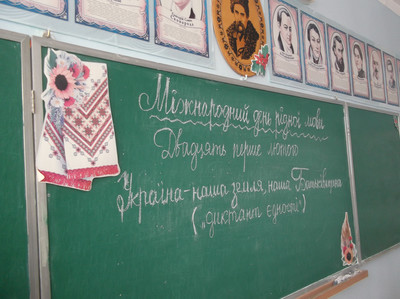 Міжнародний день рідної мови
Двадцять перше лютого
Україна - наша земля, наша Батьківщина
(„диктант єдності")